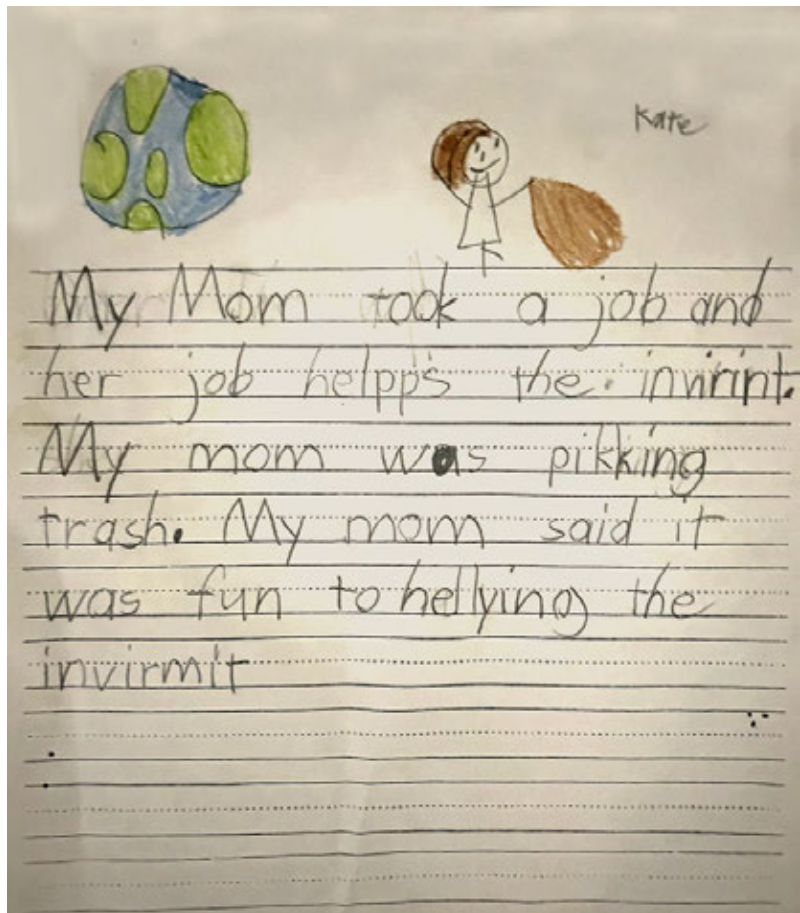 Kate
My Mom took a job and
her job helpps the invirint.
My mom was pikking
trash. My mom said it
was fun to hellying the
invirmit